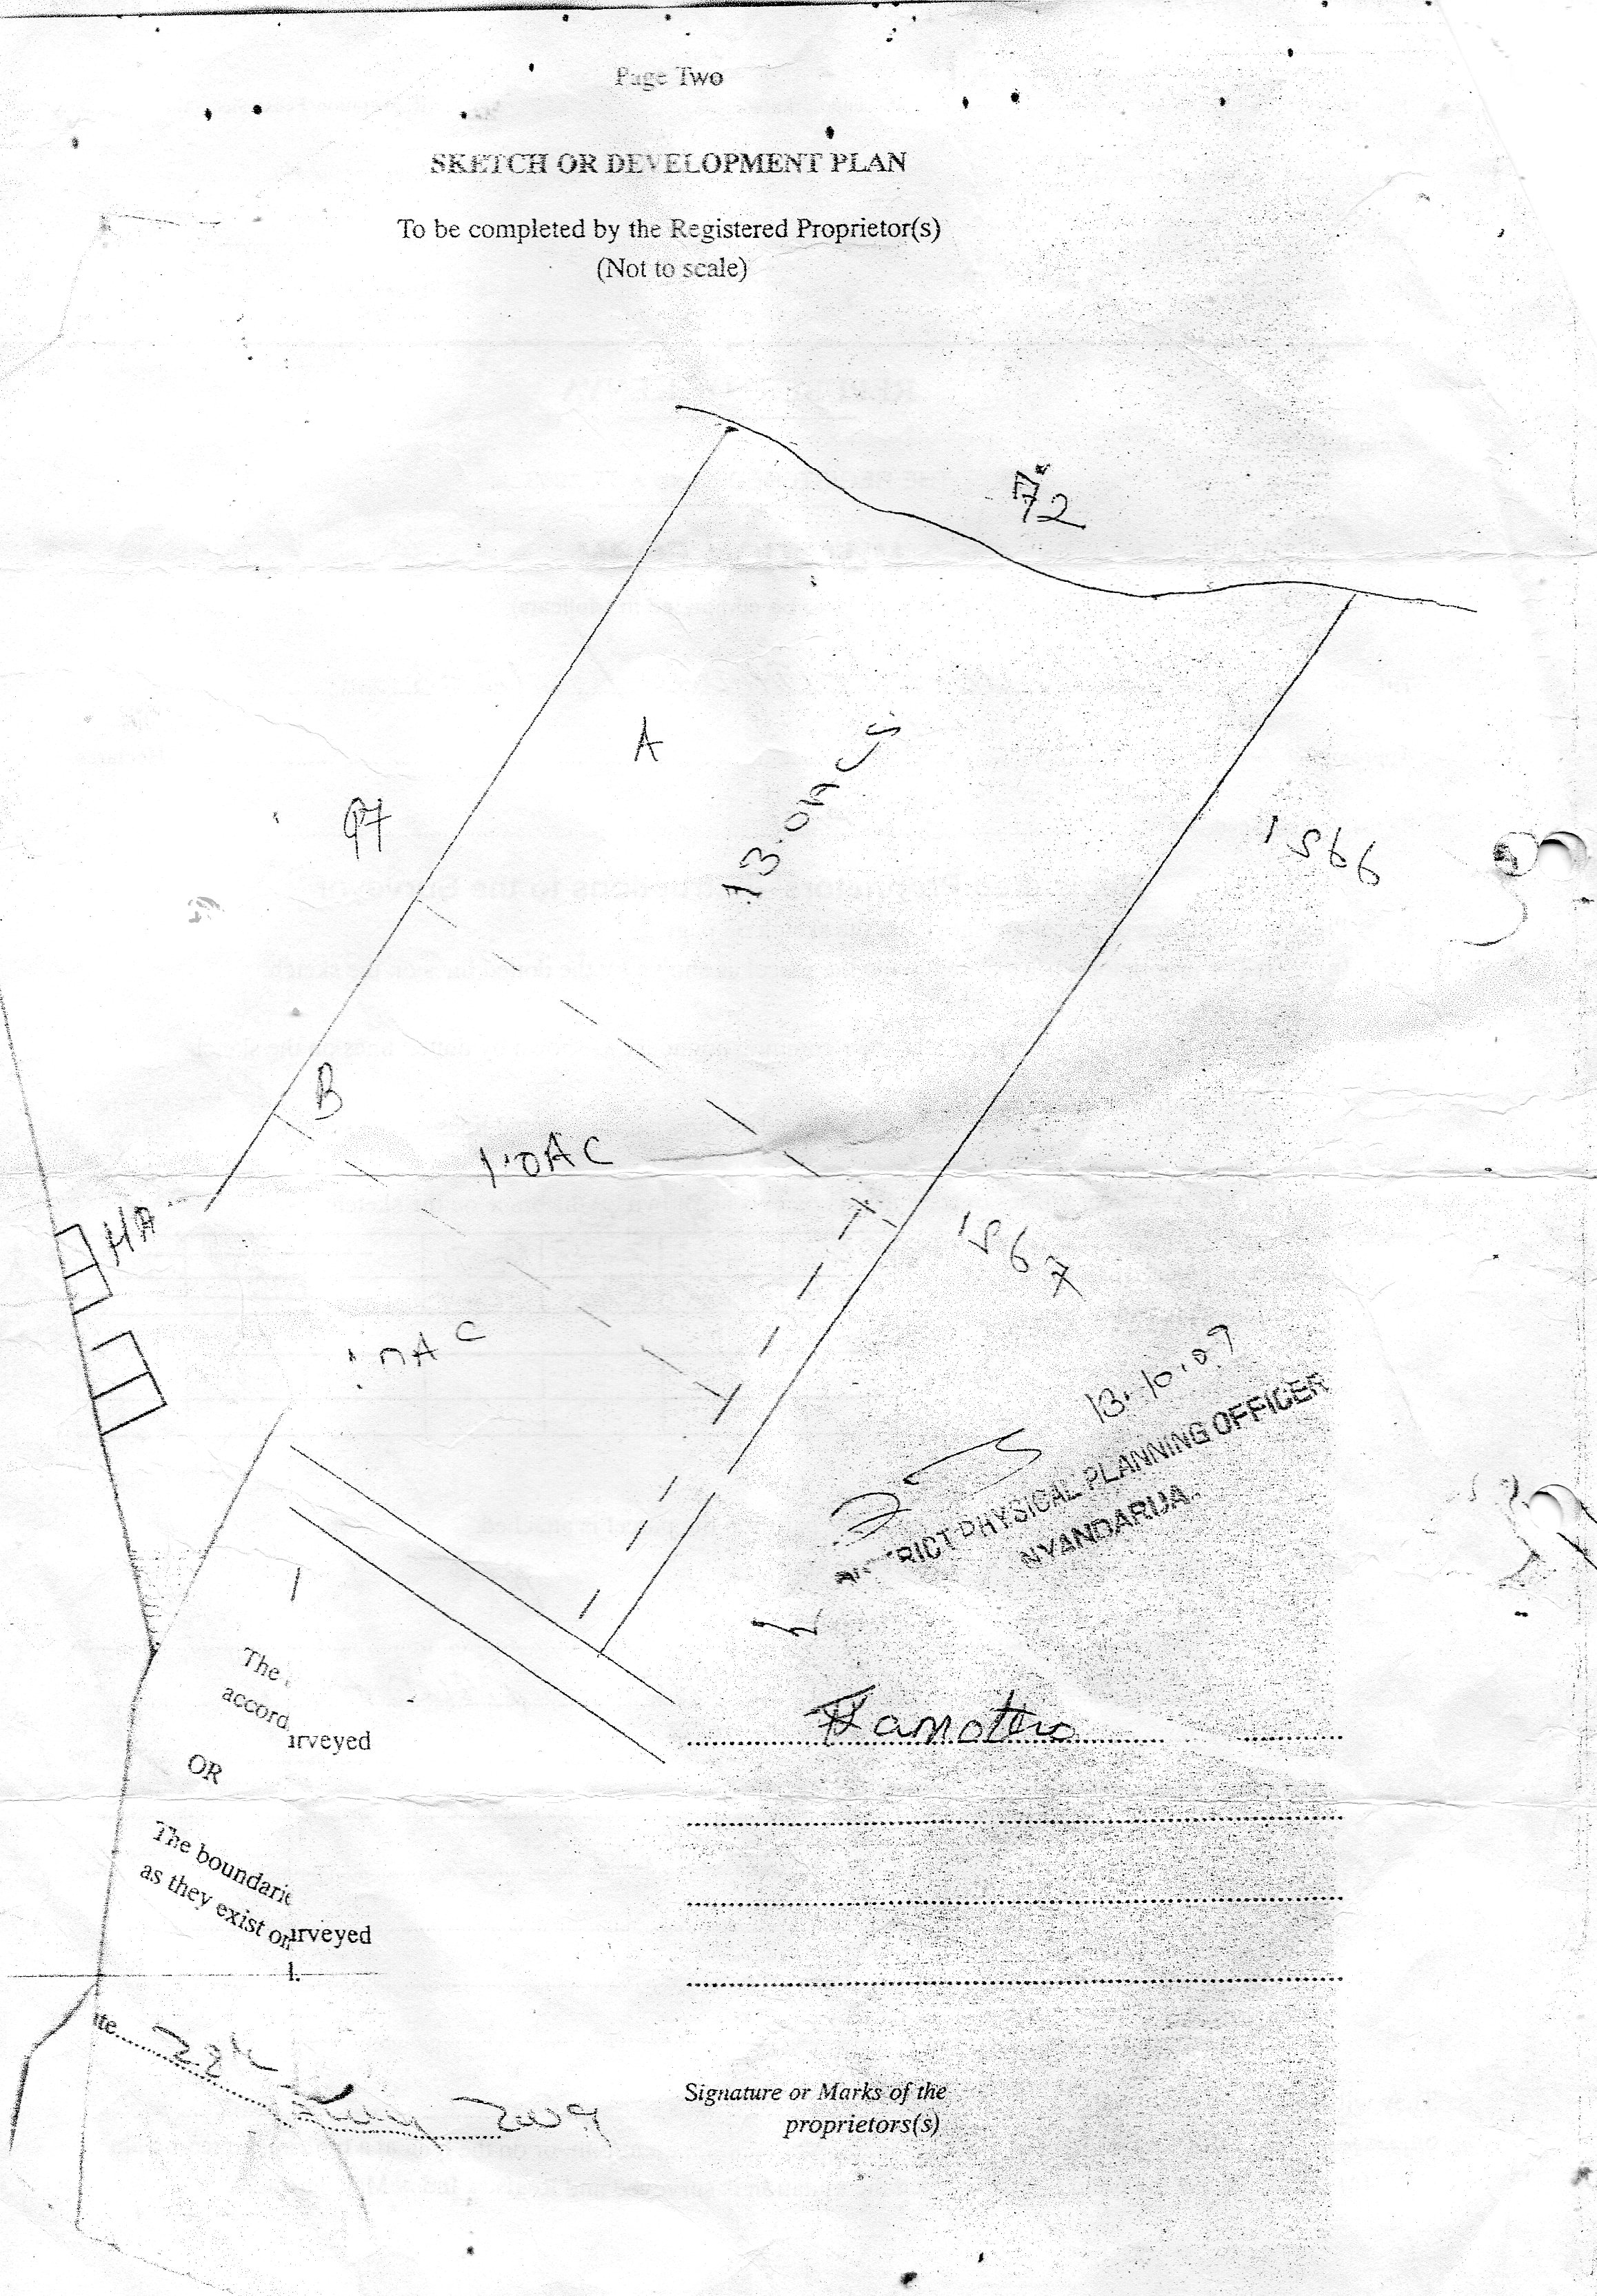 Page Two
SKETCH OR DEVELOPMENT PLAN
To be completed by the Registered Proprietor(s)
(Not to scale)
72
A
97
13.0ACS
1566
B
1.0AC
HA
1567
AC
13.10.09
PHYSICAL PLANNING OFFICER
NYANDARUA
The
accord
urveyed
OR
The boundarie
as they exist on
urveyed
Signature or Marks of the
proprietors(s)